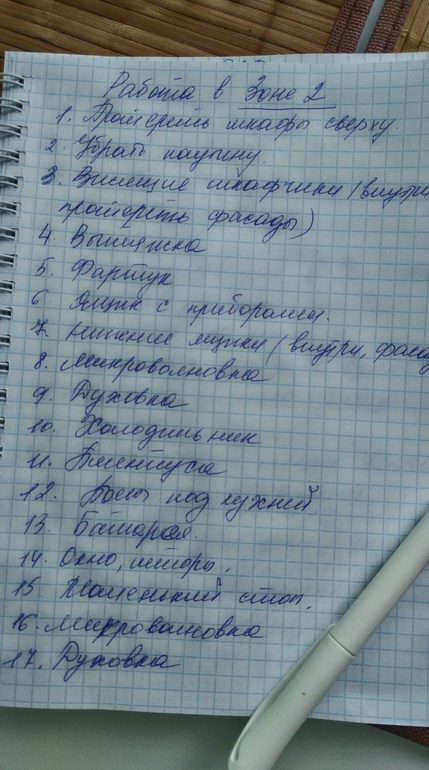 Работа в Зоне 2
1. Протереть шкафы сверху.
2. Убрать паутину.
3. Висящие шкафчики (внутри
протереть фасады)
4. Вытяжка
5. Фартук
6. Ящик с приборами.
7. Нижние ящики (внутри, фасад
8. Микроволновка
9. Духовка
10. Холодильник
11. Плинтуса
12. Полы под кухней
13. Батарея.
14. Окно, шторы.
15. Маленький стол.
16. Микроволновка
17. Духовка